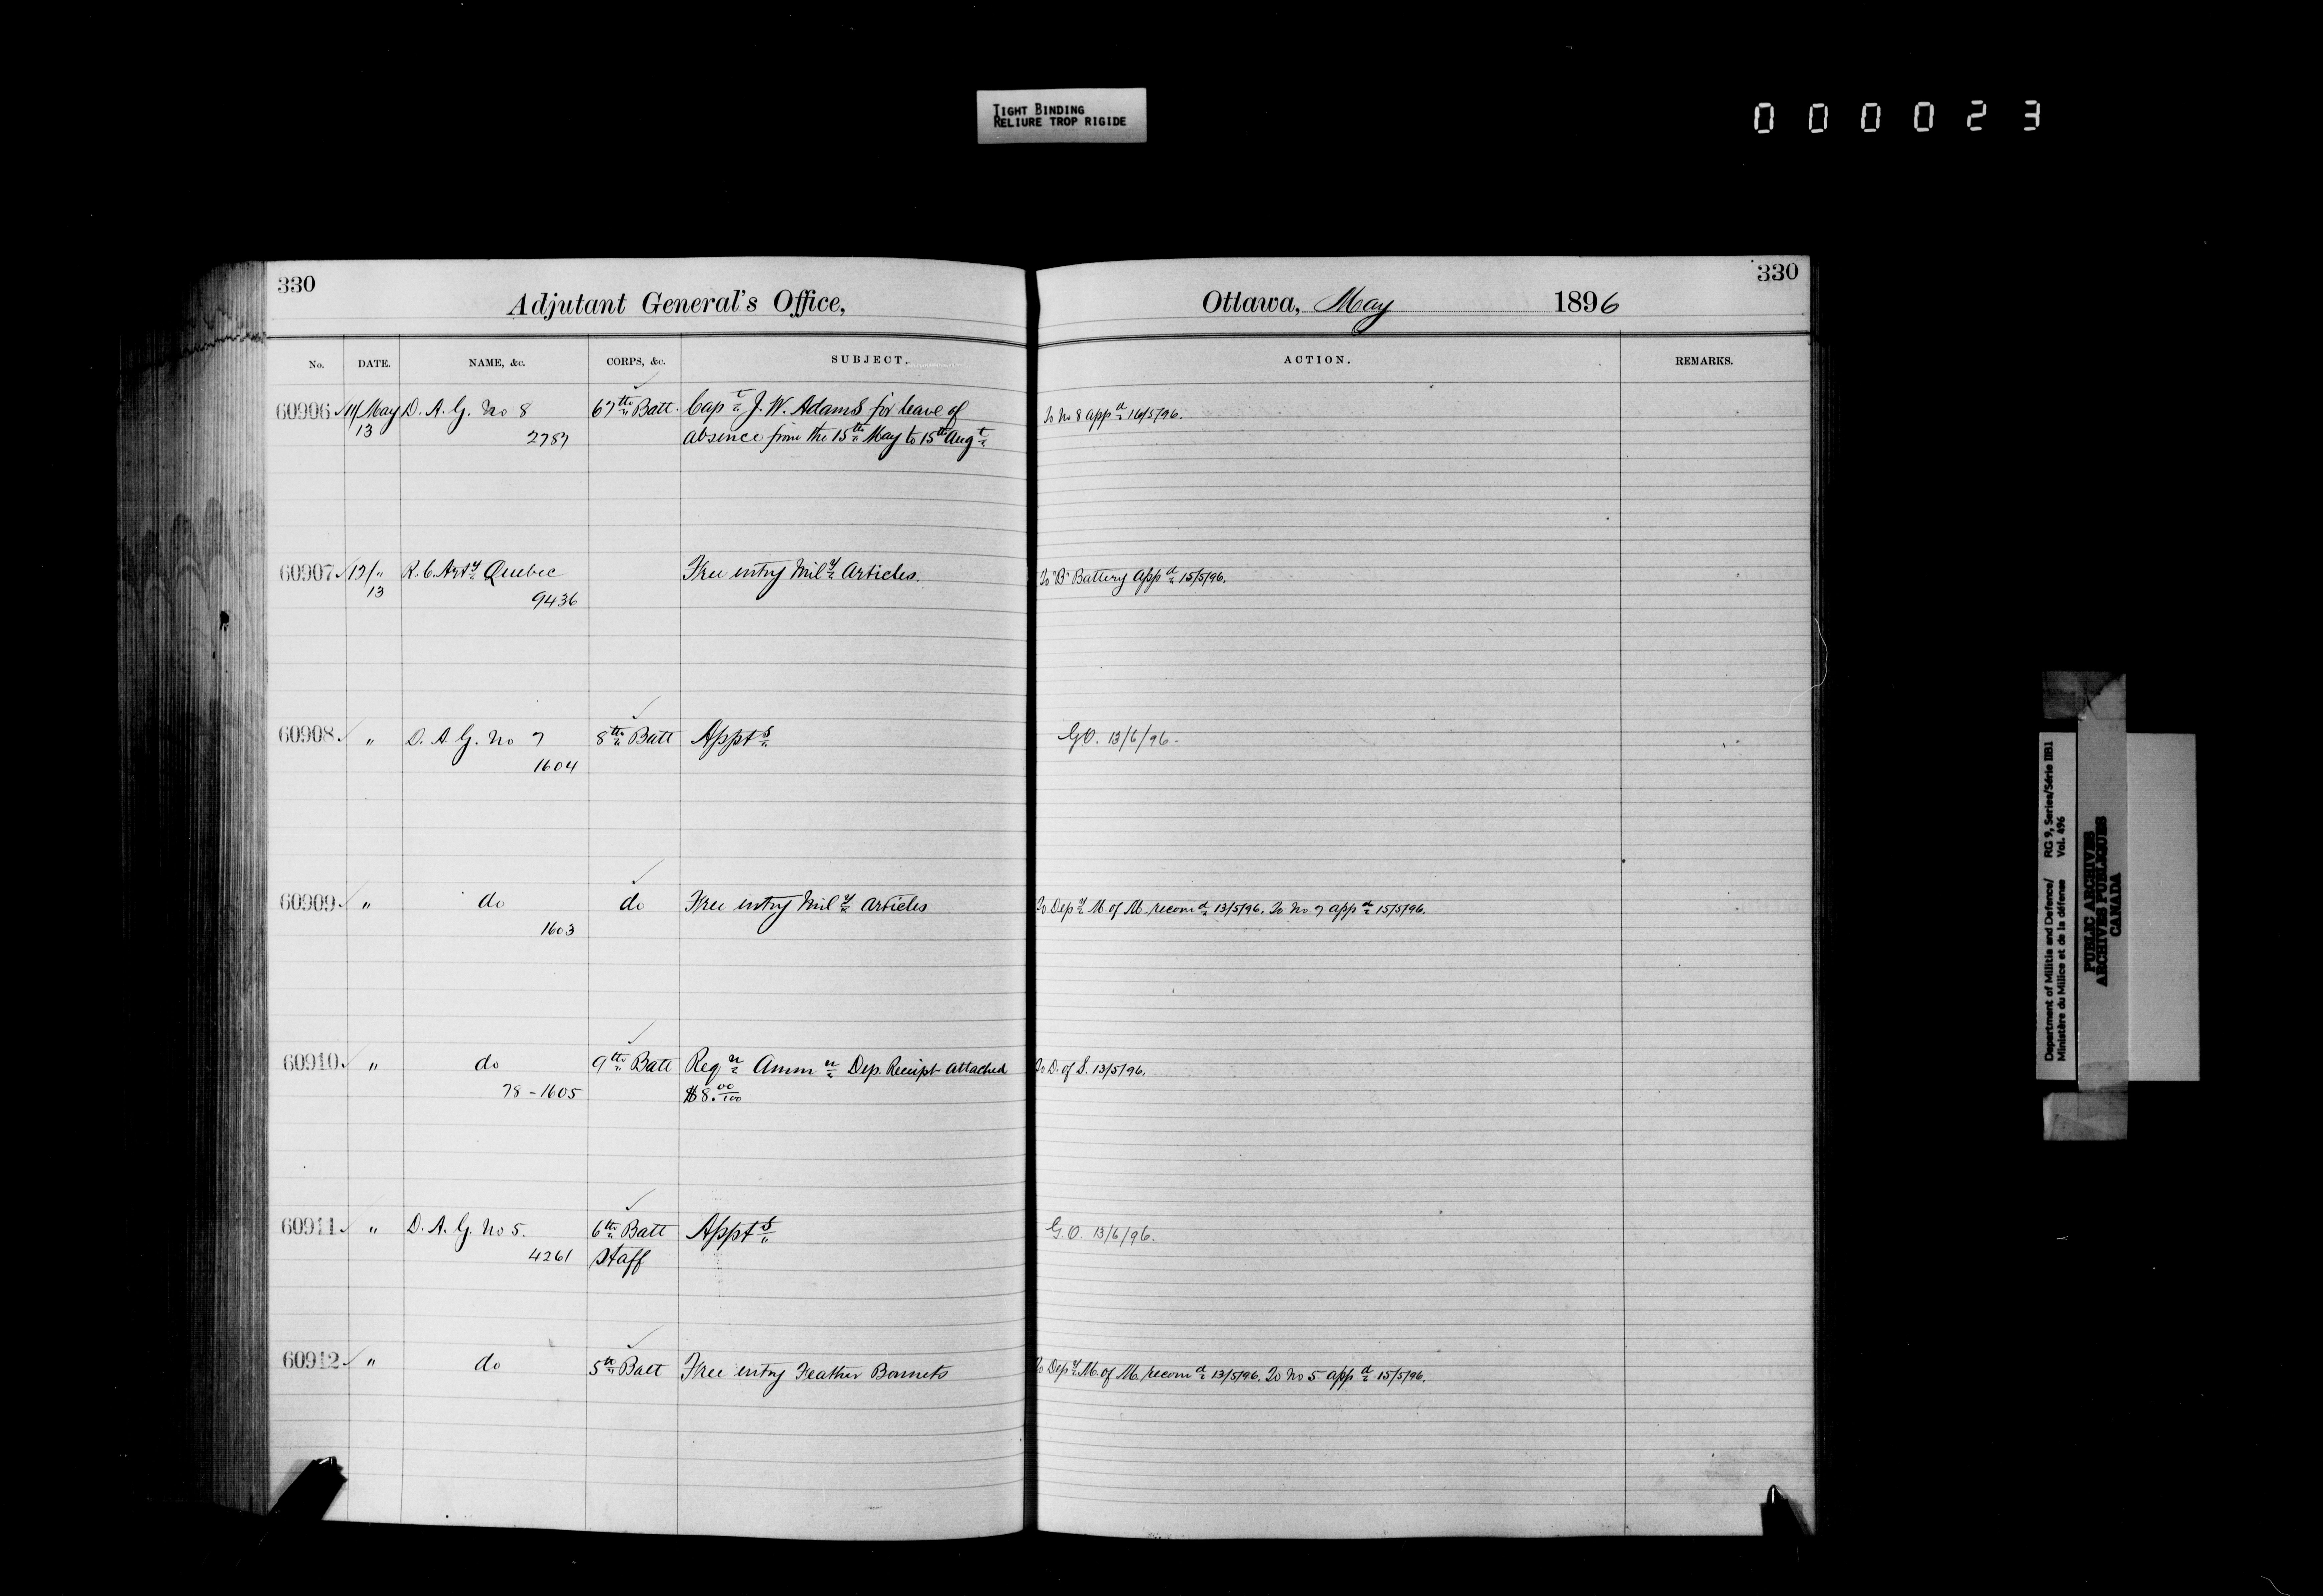 TIGHT BINDING
RELIURE TROP RIGIDE
000023
330
Adjutant General's Office,
No. DATE. NAME, &c. CORPS, &c. SUBJECT.
60906 11/May D. A. G. No 8 67th Batt. Capt J. W. Adams for leave of
13 2787 absence from the 15th May to 15th Augt
60907 12/" R. C. Arty Quebec Free entry Mily Articles.
13 9436
60908 " D. A. G. No 7 8th Batt Appts
1604
60909 " do do Free entry Mily Articles
1603
60910 " do 9th Batt Reqn Ammn Dep. Receipt attached
78-1605 $8.00/100
60911 " D. A. G. No 5. 6th Batt Appts
4261 Staff
60912 " do 5th Batt Free entry Feather Bonnets
330
Ottawa, May 1896
ACTION. REMARKS.
To No 8 appd 16/5/96.
To "B" Battery appd 15/5/96.
G.O. 13/6/96.
To Depy M. of M. recomd 13/5/96. To No 7 appd 15/5/96.
To D. of S. 13/5/96.
G.O. 13/6/96.
To Depy M. of M. recomd 13/5/96. To No 5 appd 15/5/96.
Department of Militia and Defence/ RG 9, Series/Série IIB1
Ministère du Milice et de la défense Vol. 496
PUBLIC ARCHIVES
ARCHIVES PUBLIQUES
CANADA